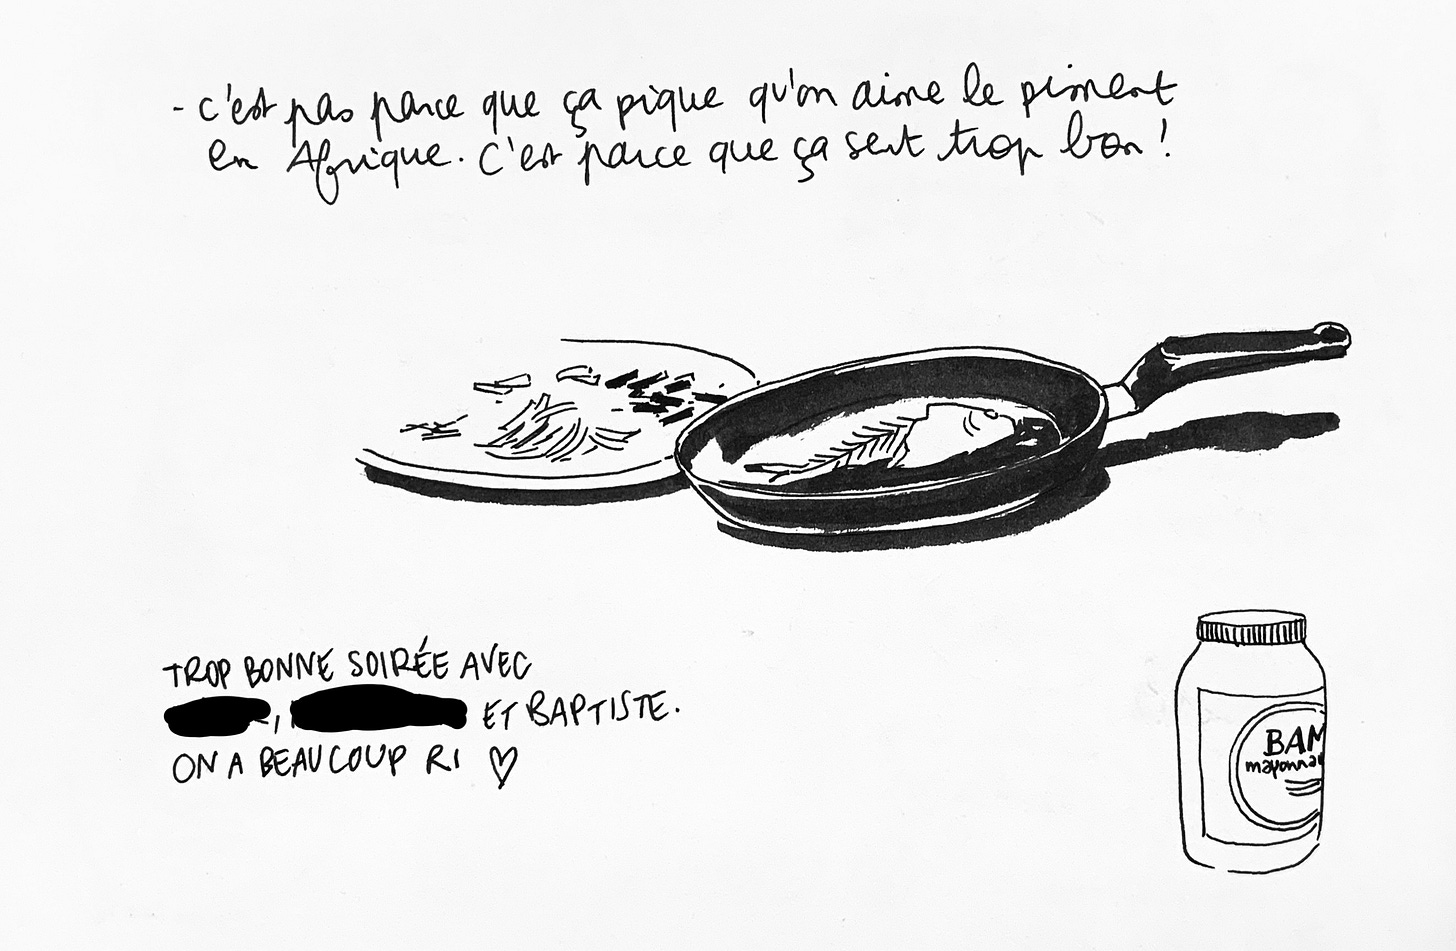 - c'est pas parce que ça pique qu'on aime le piment
en Afrique. C'est parce que ça sent trop bon !
TROP BONNE SOIRÉE AVEC
, ET BAPTISTE.
ON A BEAUCOUP RI ♡
BAM
mayonna